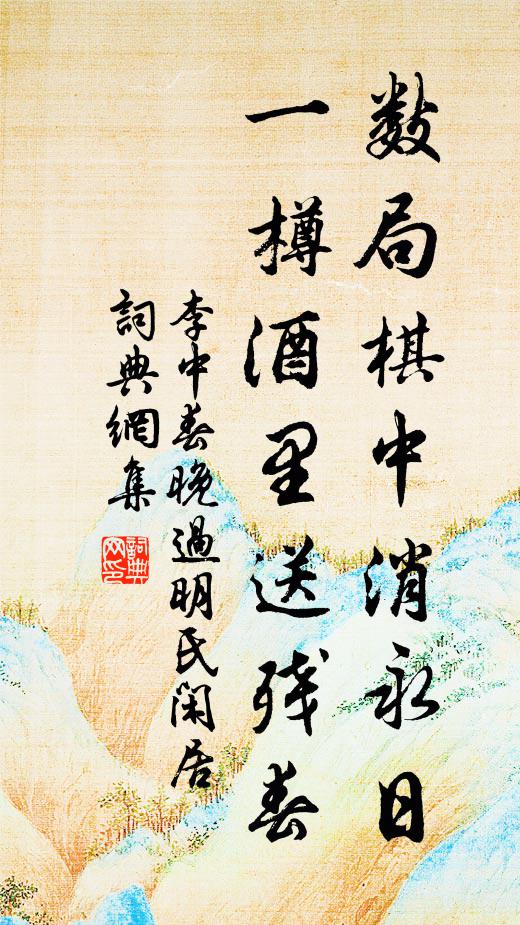 数局棋中消永日
一樽酒里送残春
李中春晚過明氏闲居
詞典網集
詞典网印